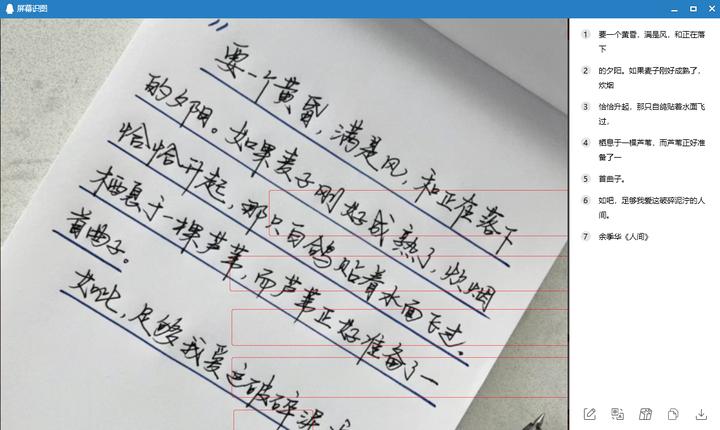 屏幕识图
要一个黄昏，满是风，和正在落下
的夕阳。如果麦子刚好成熟了，炊烟
恰恰升起，那只白鸽贴着水面飞过，
栖息于一棵芦苇，而芦苇正好准备了一
首曲子。
如此，足够我爱这破碎泥
1 要一个黄昏，满是风，和正在落
下
2 的夕阳。如果麦子刚好成熟了，
炊烟
3 恰恰升起，那只自鸽贴着水面飞
过，
4 栖息于一模芦苇，而芦苇正好准
备了一
5 首曲子。
6 如吧，足够我爱这破碎泥泞的人
间。
7 余季华《人间》